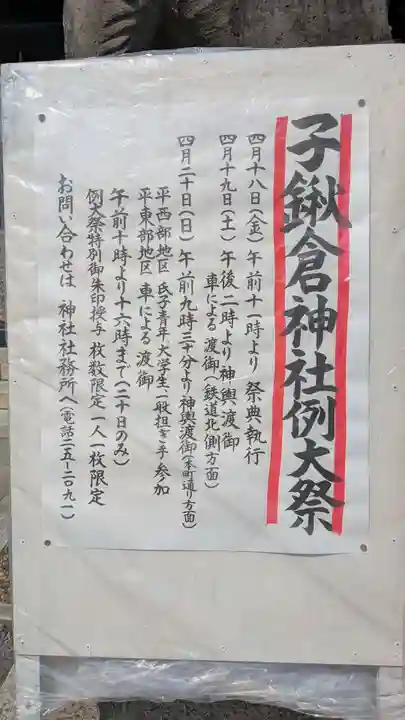 子鍬倉神社例大祭
四月十八日(金)午前十一時より祭典執行
四月十九日(土)午後二時より神輿渡御
車による渡御(鉄道北側方面)
四月二十日(日)午前九時三十分より神輿渡御(本町通り方面)
平西部地区 氏子青年大学生一般担ぎ手参加
平東部地区 車による渡御
午前十時より十六時まで(二十日のみ)
例大祭特別御朱印授与 枚数限定一人一枚限定
お問い合わせは 神社社務所へ(電話二五-二〇九一)